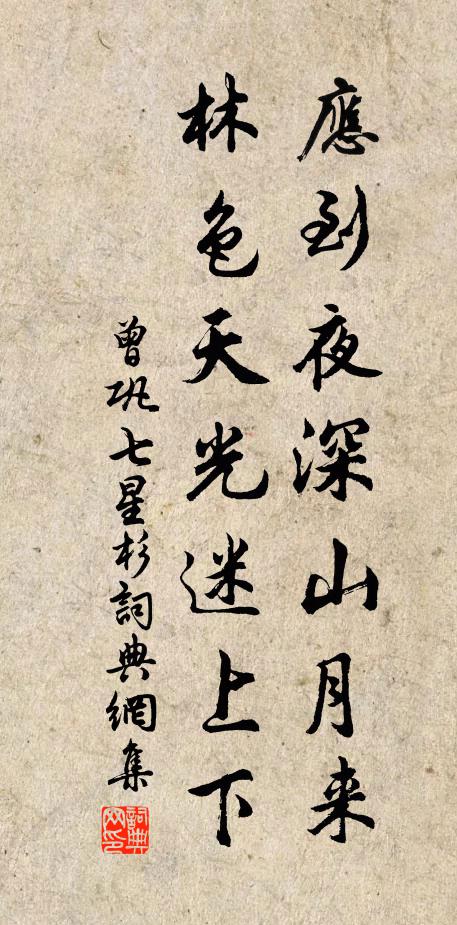 應到夜深山月来
林色天光迷上下
曾巩七星杉詞典網集
詞典网印